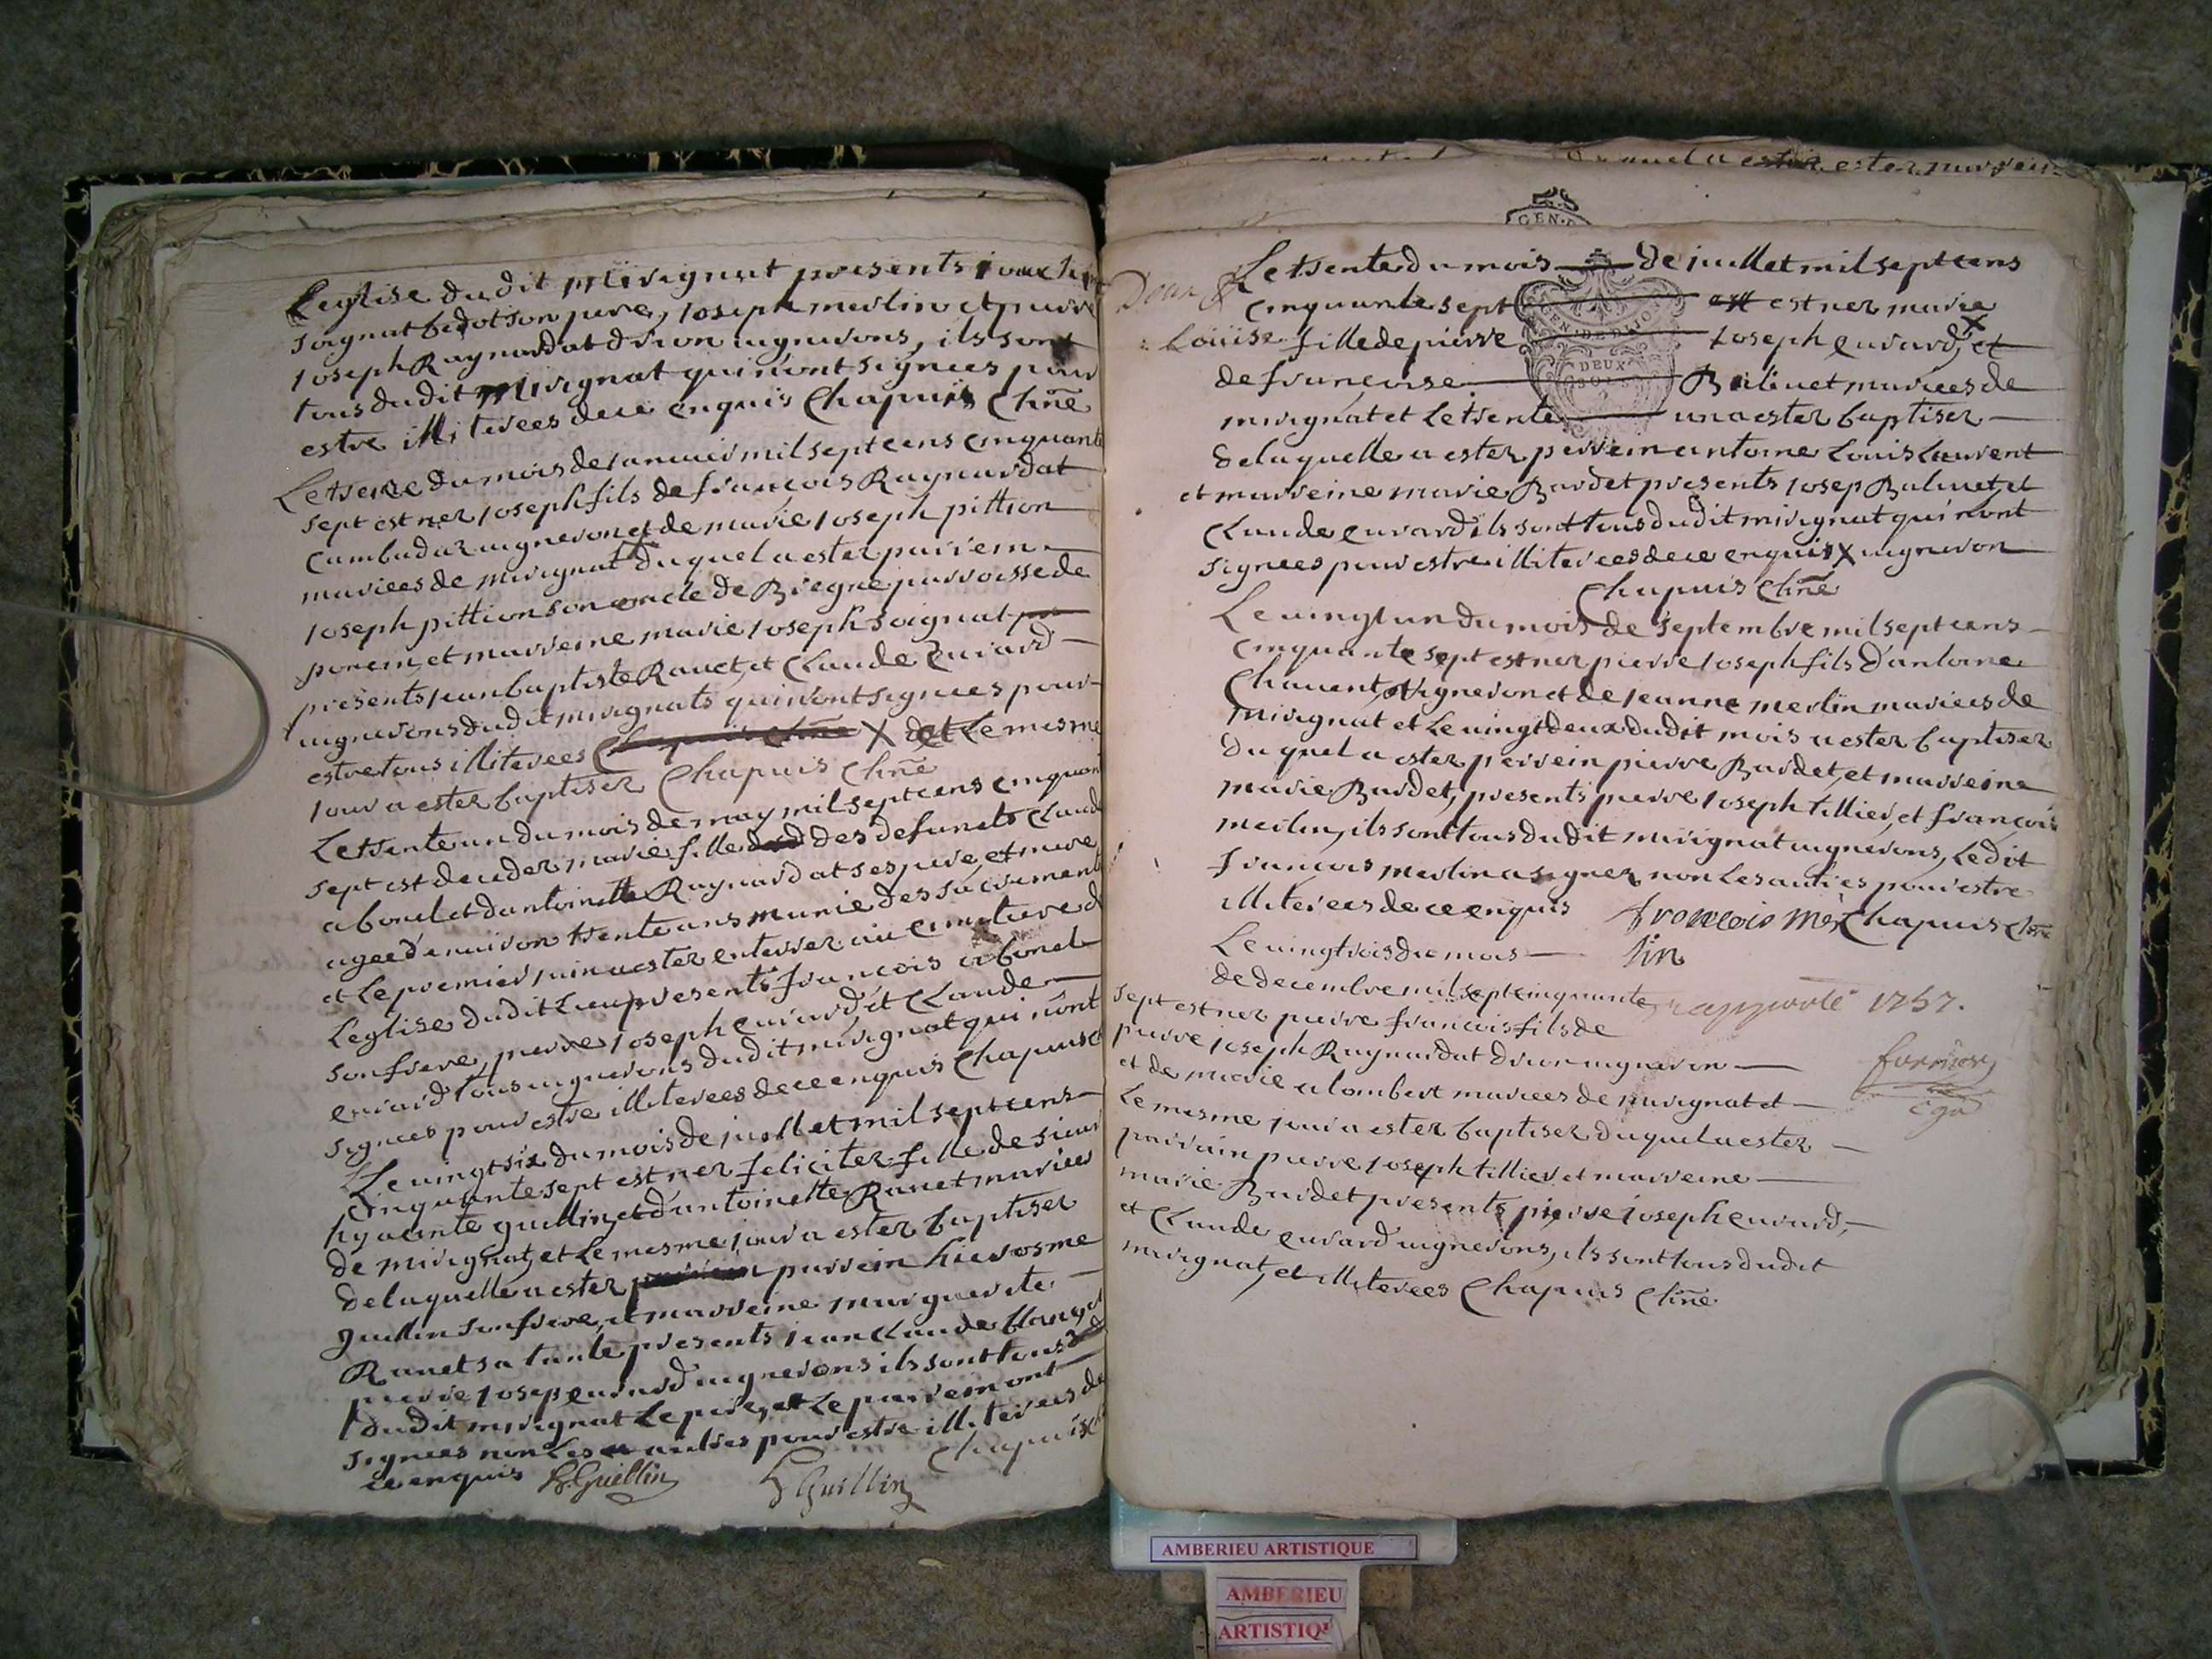 Leglise dudit Mirignat presents
soignat bedot son pere, Joseph merlin et pierre
Joseph Raynardat drion uignerons, ils sont
tous dudit Mirignat qui n'ont signees pour
estre illiterees de ce enquis Chapuis Chne
Le treize du mois de januier mil sept cens cinquante
sept est nez Joseph fils de francois Raynardat
cambadaz uigneron et de marie Joseph pittion
mariees de mirignat X duquel a ester pairein
Joseph pittion son oncle de Biegne parroisse de
porcin, et marreine marie Joseph soignat
presents jean baptiste Rauet, et Claude Eurard
uignerons dudit mirignats qui n'ont signees pour
estre tous illiterees X et Le mesme
jour a ester baptiser Chapuis Chne
Le trente un du mois de may mil sept cens cinquante
sept est deceder marie fille des defuncts Claude
abonel et d'antoinette Raynardat ses pere, et mere
agee d'enuiron trente ans munie des sacrements
et Le premier juin a ester enterrer au cimetiere d
Leglise dudit Lieu presents francois abonel
son frere, pierre Joseph euurard et Claude
eurard tous uignerons dudit mirignat qui n'ont
signees pour estre illiterees de ce enquis Chapuis
Le uingt six du mois de juillet mil sept cens
cinquante sept est nez feliciter fille de sieur
hyacinte guillin, et d'antoinette Rauet mariees
de mirignat, et Le mesme jour a ester baptiser
de laquelle a ester parrein hierosme
Guillin son frere, et marreine marguerite
Rauet sa tante presents jean Claude blanc
pierre Josep eurard uignerons ils sont tous
dudit mirignat Le pere, et Le parrein ont
signees non Les autres pour estre illiterees de
ce enquis h. Guillin h Guillin Chapuis
GEN.
Le trente du mois de juillet mil sept cens
cinquante sept est nez marie
Louïise fille de pierre Joseph eurard, et
GEN. DE DIJO
de francoise Balivet mariees de
DEUX SOLS
mirignat et Le trente un a ester baptiser
de laquelle a ester parrein antoine Louis Laurent
et marreine marie Bardet presents Josep Balivet, et
Claude eurard ils sont tous dudit mirignat qui n'ont
signees pour estre illiterees de ce enquis X uigneron
Chapuis Chne
Le uingt un du mois de septembre mil sept cens
cinquante sept est nez pierre Joseph fils d'antoine
Chauent, uigneron et de jeanne merlin mariees de
mirignat et Le uingt deux dudit mois a ester baptiser
duquel a ester parrein pierre Bardet, et marreine
marie Bardet, presents pierre Joseph tillier, et francois
merlin, ils sont tous dudit mirignat uignerons, Ledit
francois merlin a signer non Les autres pour estre
illiterees de ce enquis francois mer Chapuis Chne
lin
Le uingt trois du mois
de decembre mil sept cinquante
rapporté 1757.
sept est nez pierre francois fils de
pierre Joseph Raynardat drion uigneron
et de marie alombert mariees de mirignat et
Le mesme jour a ester baptiser duquel a ester
parrain pierre Joseph tillier et marreine
marie Bardet presents pierre Joseph eurard,
et Claude eurard uignerons, ils sont tous dudit
mirignat, et illiterees Chapuis Chne
AMBERIEU ARTISTIQUE
AMBERIEU
ARTISTIQ